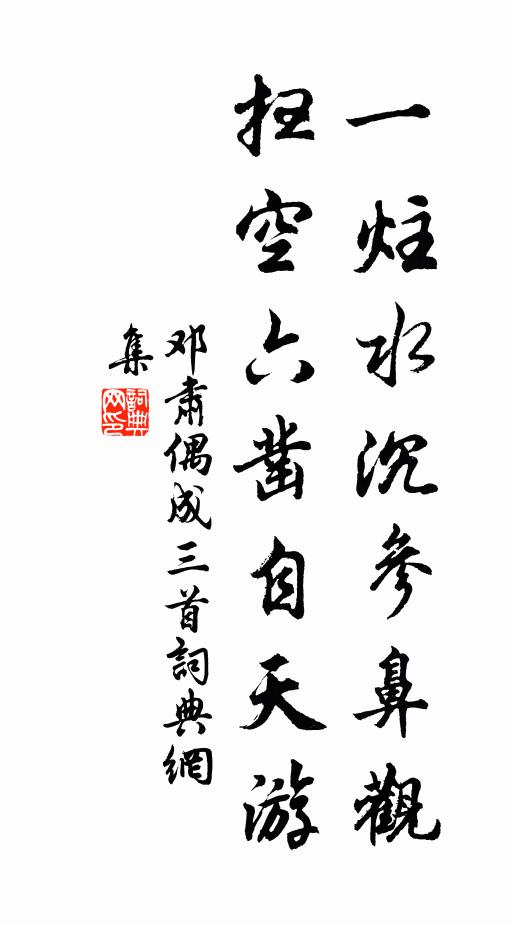 一炷水沉參鼻觀
扫空六凿自天游
邓肃偶成三首詞典網
集
詞典
网印